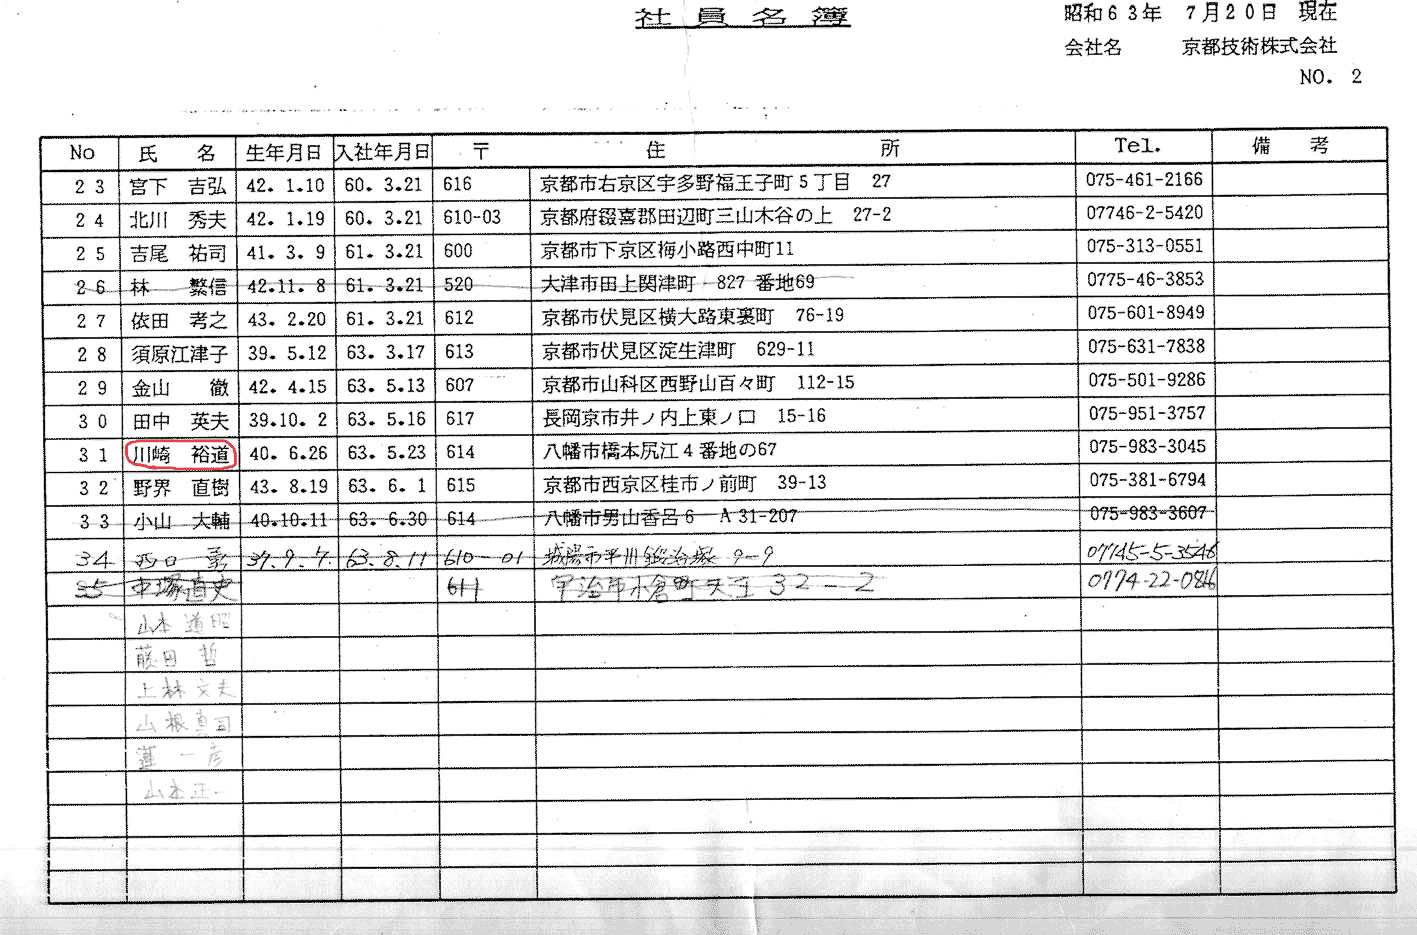 社員名簿
昭和63年 7月20日 現在
会社名 京都技術株式会社
NO. 2
No 氏 名 生年月日 入社年月日 〒 住 所 Tel. 備 考
23 宮下 吉弘 42. 1.10 60. 3.21 616 京都市右京区宇多野福王子町5丁目 27 075-461-2166
24 北川 秀夫 42. 1.19 60. 3.21 610-03 京都府綴喜郡田辺町三山木谷の上 27-2 07746-2-5420
25 吉尾 祐司 41. 3. 9 61. 3.21 600 京都市下京区梅小路西中町11 075-313-0551
26 林 繁信 42.11. 8 61. 3.21 520 大津市田上関津町 827 番地69 0775-46-3853
27 依田 考之 43. 2.20 61. 3.21 612 京都市伏見区横大路東裏町 76-19 075-601-8949
28 須原江津子 39. 5.12 63. 3.17 613 京都市伏見区淀生津町 629-11 075-631-7838
29 金山 徹 42. 4.15 63. 5.13 607 京都市山科区西野山百々町 112-15 075-501-9286
30 田中 英夫 39.10. 2 63. 5.16 617 長岡京市井ノ内上東ノ口 15-16 075-951-3757
31 川崎 裕道 40. 6.26 63. 5.23 614 八幡市橋本尻江4番地の67 075-983-3045
32 野界 直樹 43. 8.19 63. 6. 1 615 京都市西京区桂市ノ前町 39-13 075-381-6794
33 小山 大輔 40.10.11 63. 6.30 614 八幡市男山香呂6 A31-207 075-983-3607
34 西口 彰 37.9.7. 63.8.11 610-01 城陽市平川鍛治塚 9-9 07745-5-3546
35 中塚直史 611 宇治市小倉町天王 32-2 0774-22-0816
山本 道昭
藤田 哲
上林 文夫
山根真司
一彦
山本正一